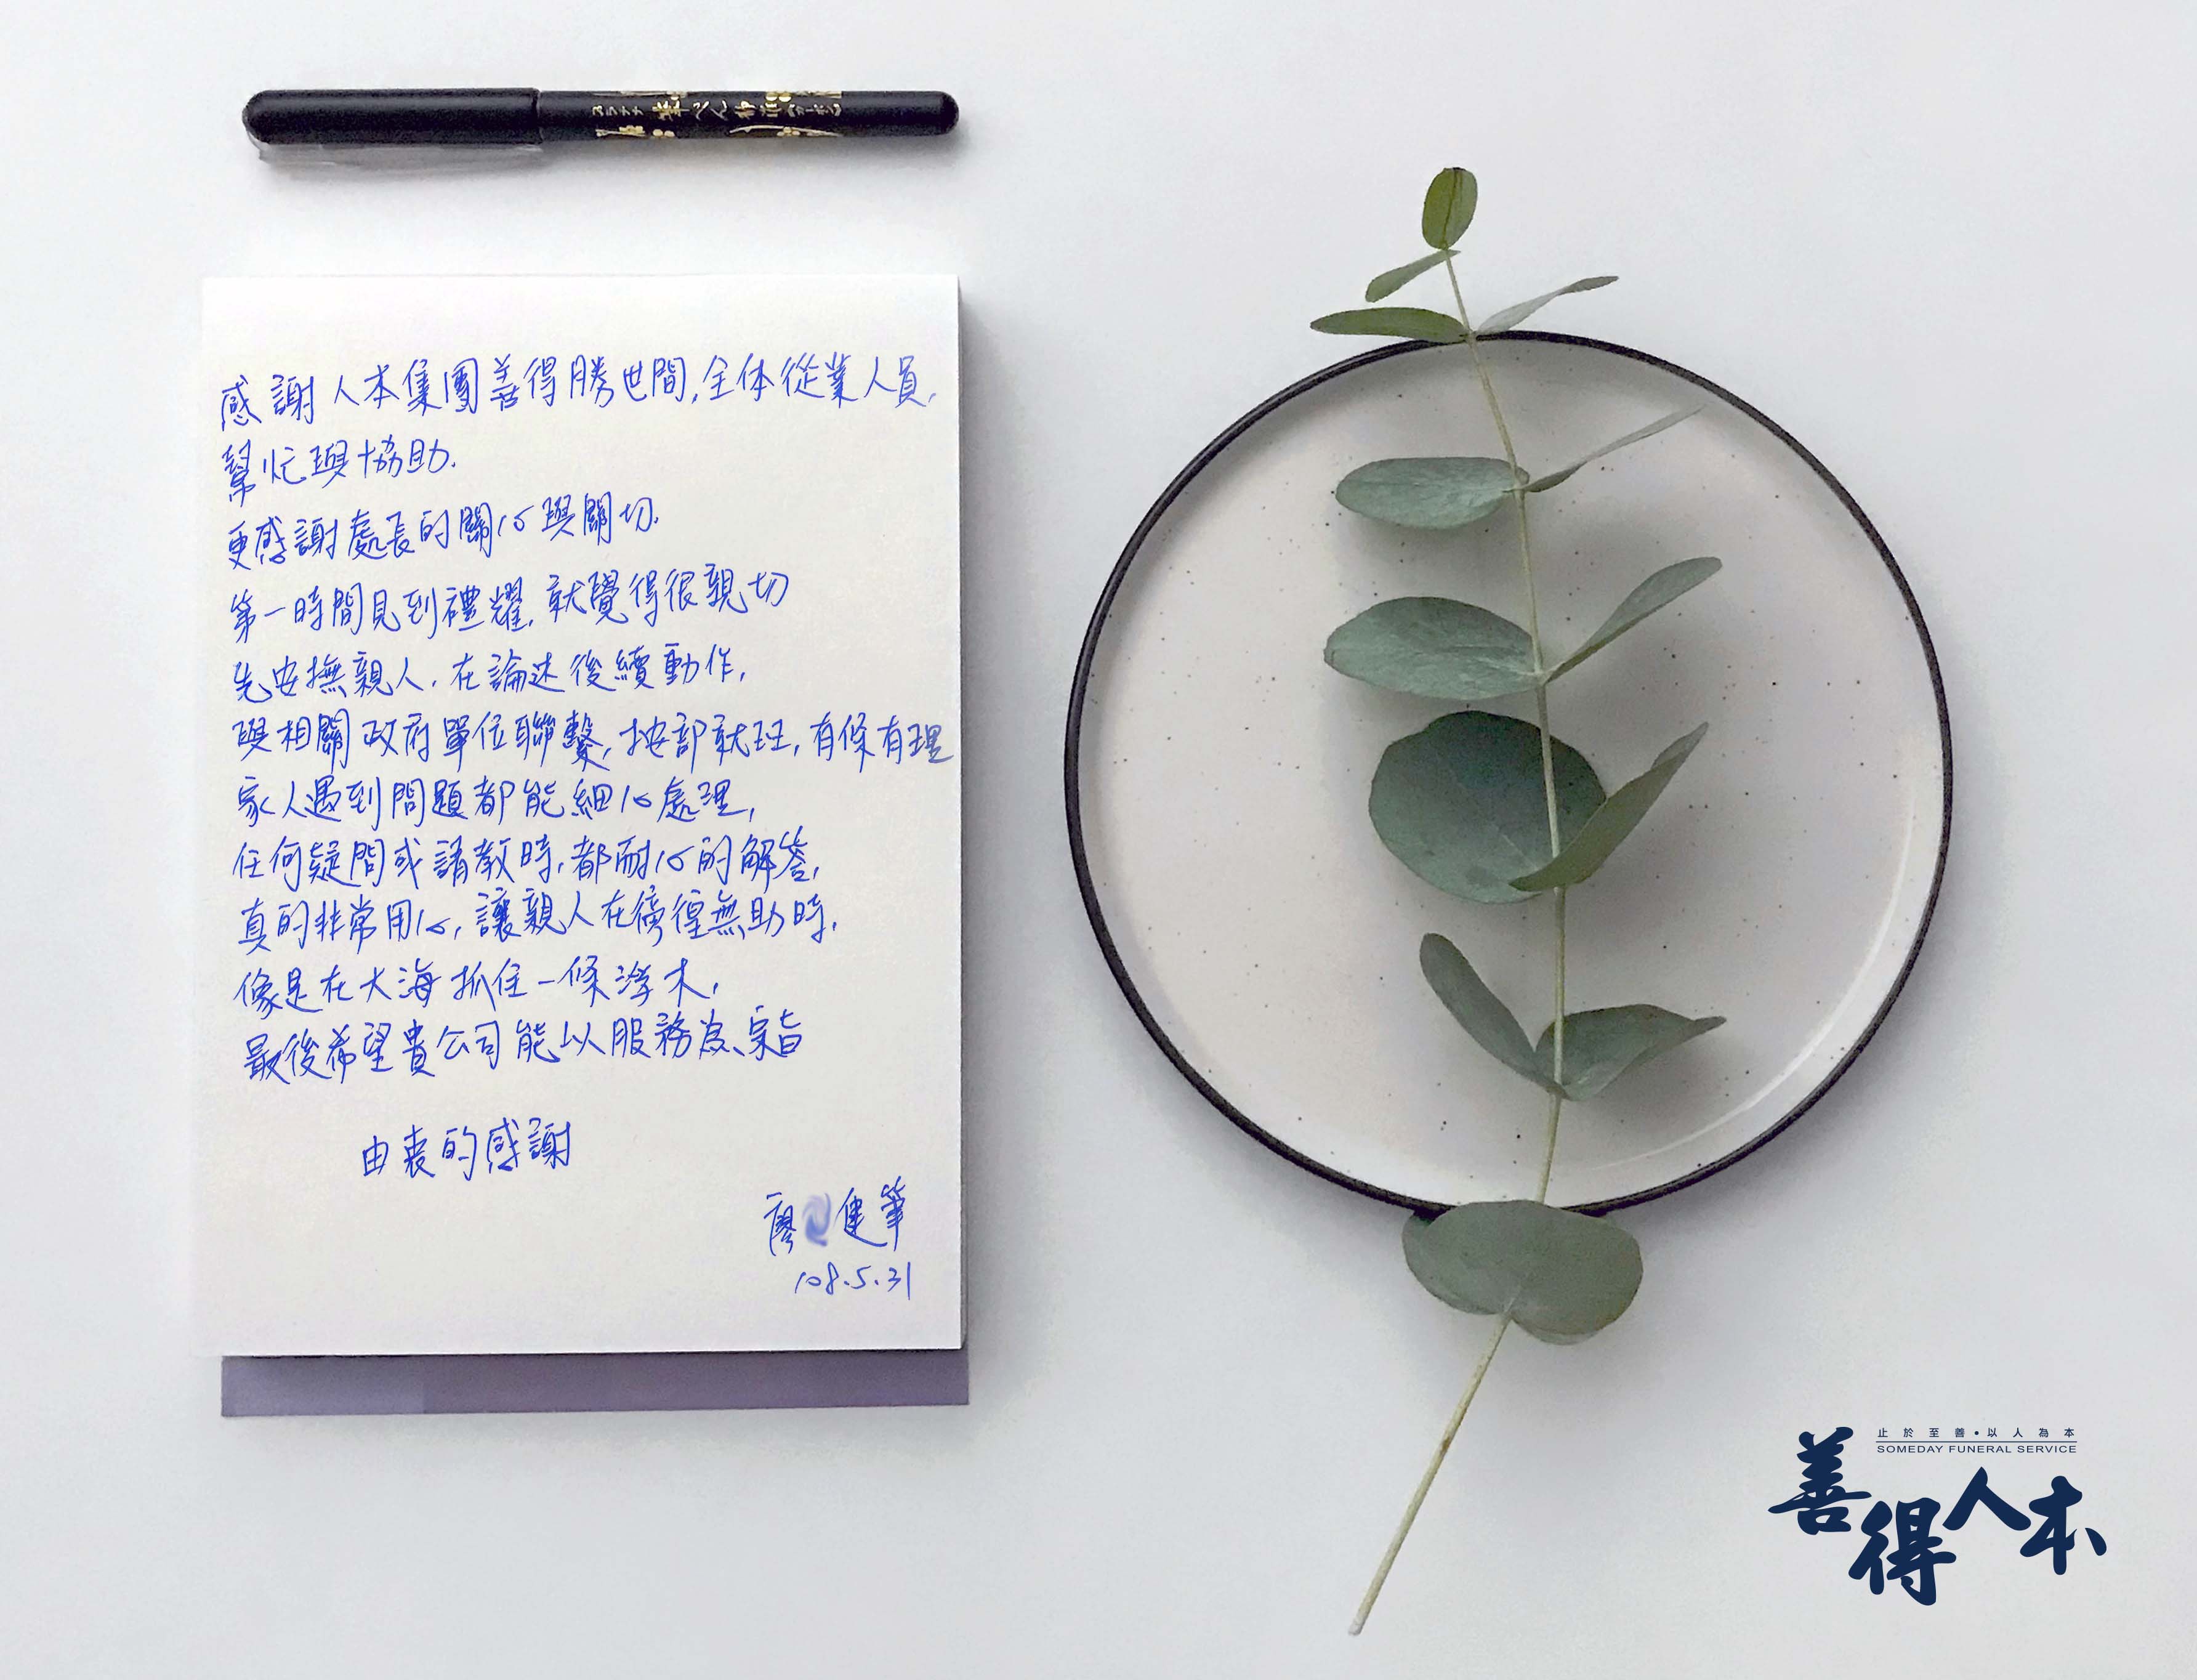 感謝人本集團善得勝世間,全体從業人員.
幫忙與協助.
更感謝處長的關心與關切.
第一時間見到禮耀,就覺得很親切
先安撫親人.在論述後續動作,
與相關政府單位聯繫,按部就班,有條有理
家人遇到問題都能細心處理,
任何疑問或請教時,都耐心的解答,
真的非常用心,讓親人在徬徨無助時,
像是在大海抓住一條浮木,
最後希望貴公司能以服務為宗旨
由衷的感謝
廖 健筆
108.5.31
止於至善•以人為本
SOMEDAY FUNERAL SERVICE
善得人本